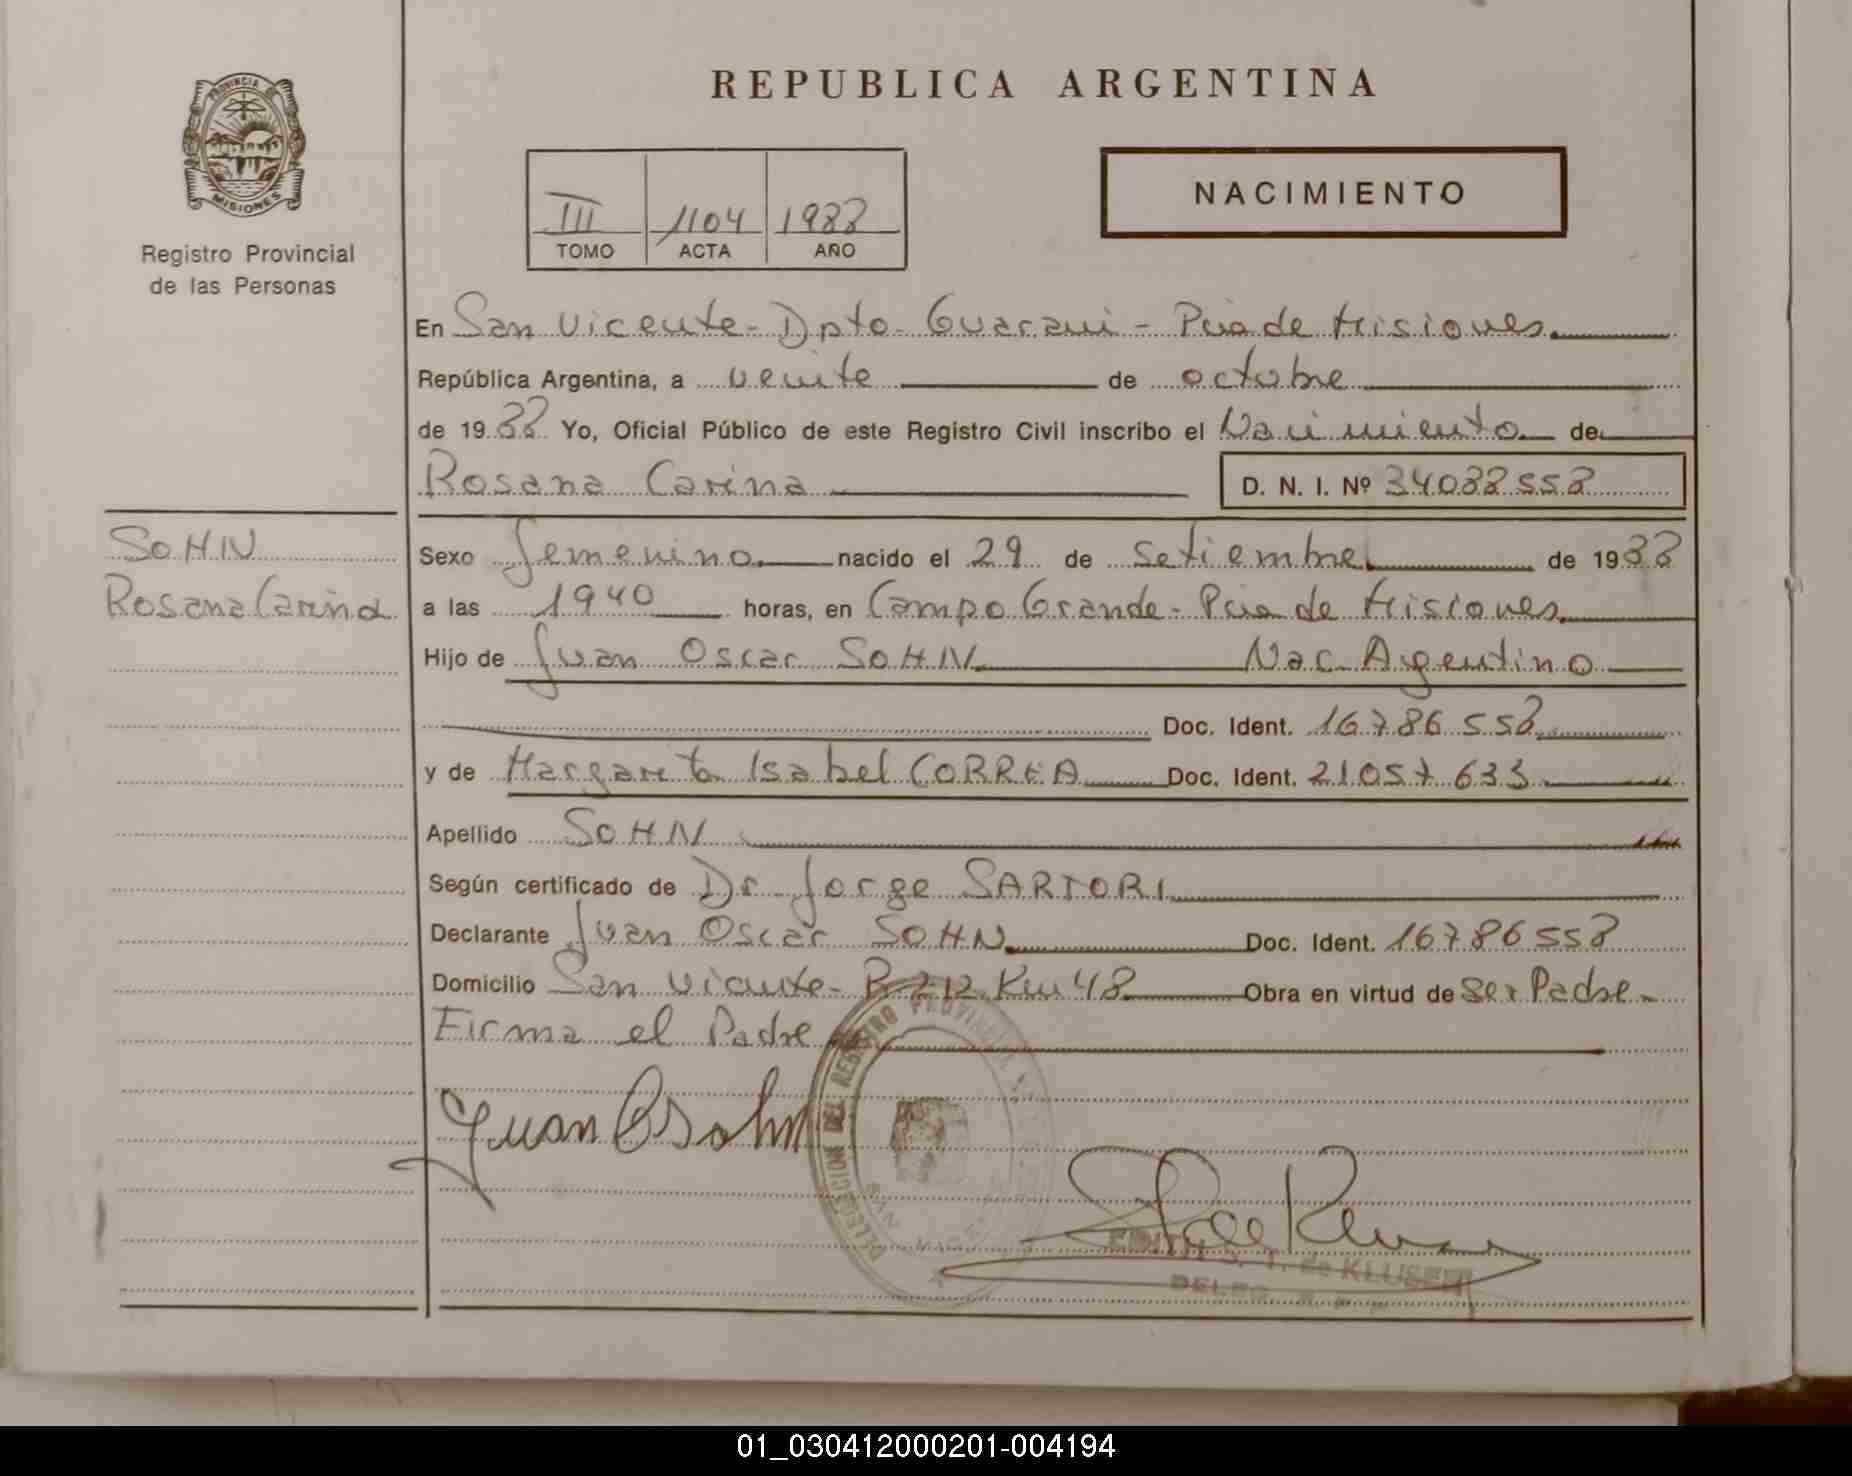 PROVINCIA DE
MISIONES
Registro Provincial
de las Personas
REPUBLICA ARGENTINA
III 1104 1988
TOMO ACTA AÑO
NACIMIENTO
En San Vicente - Dpto. Guarani - Pcia de Misiones.
República Argentina, a veinte de octubre
de 1988 Yo, Oficial Público de este Registro Civil inscribo el Nacimiento de
Rosana Carina D. N. I. Nº 34088558
SOHN
Rosana Carina
Sexo femenino nacido el 29 de Setiembre de 1988
a las 1940 horas, en Campo Grande - Pcia de Misiones.
Hijo de Juan Oscar SOHN Nac. Argentino
Doc. Ident. 16786558
y de Margarita Isabel CORREA Doc. Ident. 21057633
Apellido SOHN
Según certificado de Dr Jorge SARTORI
Declarante Juan Oscar SOHN Doc. Ident. 16786558
Domicilio San Vicente - R 212 Km 48 Obra en virtud de ser Padre.
Firma el Padre
Juan O Sohn
DELEGACION DEL REGISTRO PROVINCIAL
SAN VICENTE
de KLUSEN
01_030412000201-004194